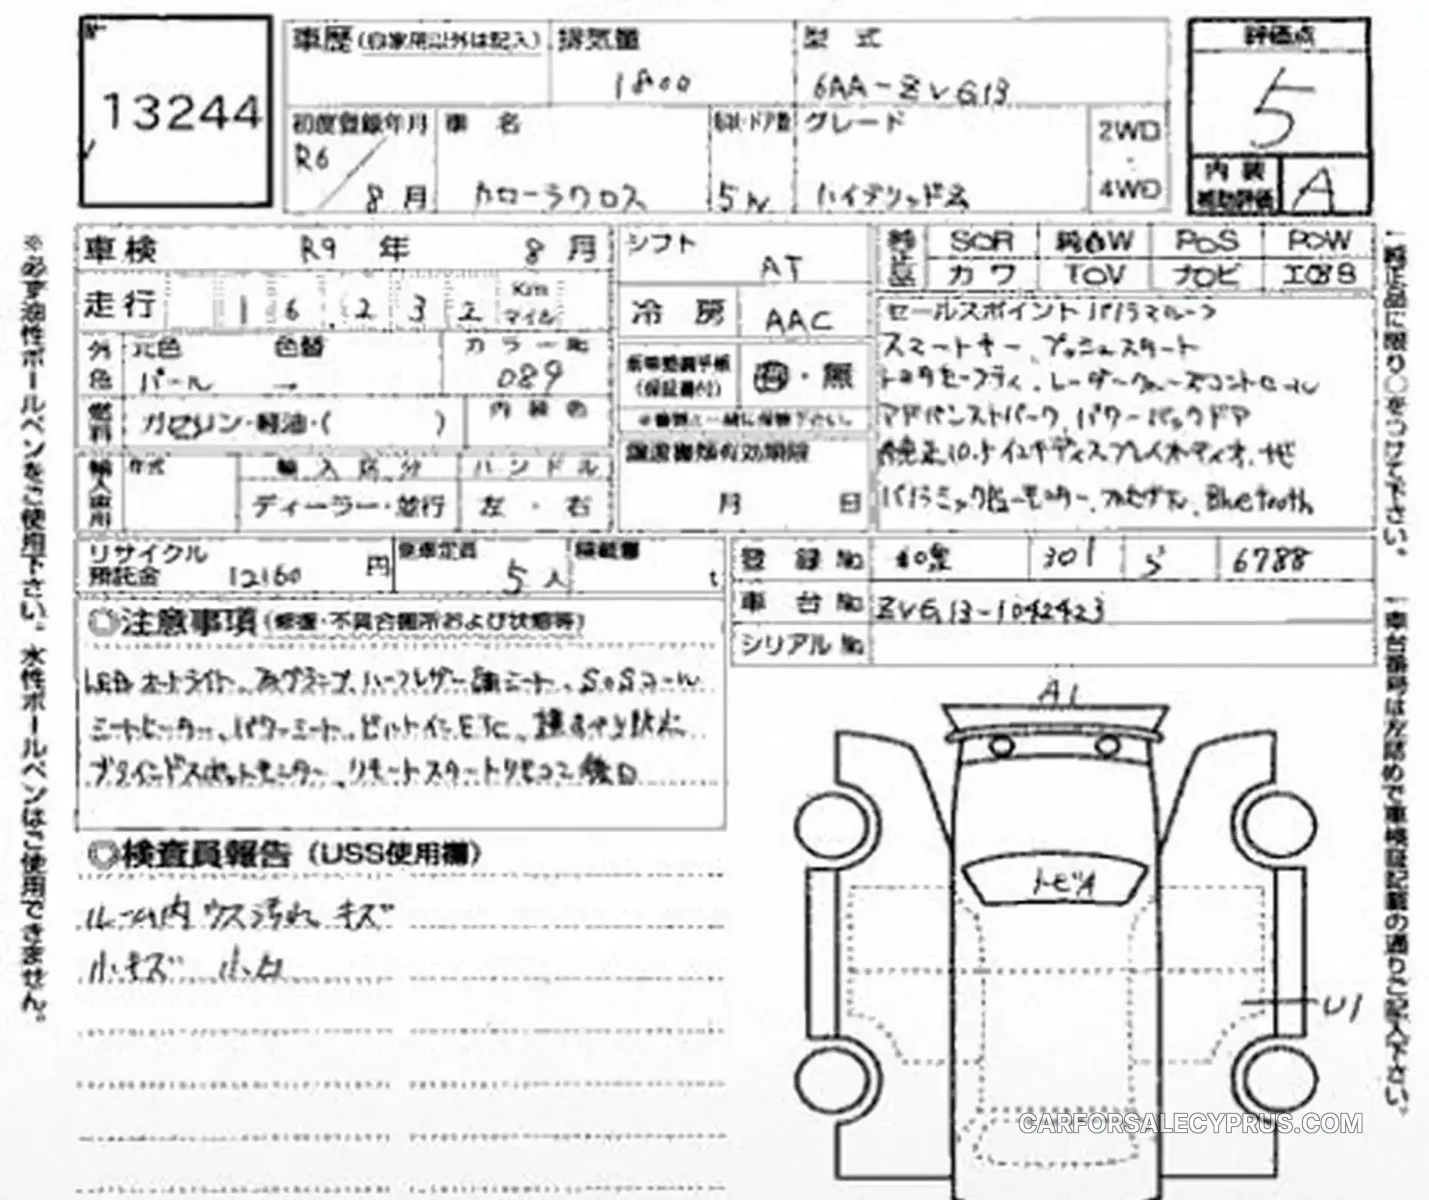 13244
車歴 (自家用以外は記入) 排気量 型 式 評価点
1800 6AA-ZVG13 5
初度登録年月 車 名 形状・ドア数 グレード 2WD
・
R6 8月 カローラクロス 5W ハイブリッドZ 4WD
内 装 補助評価 A
車検 R9 年 8 月 シフト AT
純正品 SOR 純正AW POS POW
カワ TOV ナビ エアB
走行 16,232 Km マイル 冷 房 AAC
セールスポイント パノラマルーフ
スマートキー、プッシュスタート
トヨタセーフティ、レーダークルーズコントロール
アドバンストパーク、パワーバックドア
純正10.5インチディスプレイオーディオ、ナビ
パノラミックビューモニター、フルセグTV、Bluetooth
外色 元色 色替 カラー№
パール → 089
新車整備手帳 (保証書付) 有・無
燃料 ガソリン・軽油・( ) 内 装 色
輸入車用 年式 輸 入 区 分 ハ ン ド ル
ディーラー・並行 左 ・ 右
譲渡書類有効期限
月 日
リサイクル預託金 12160 円 乗車定員 5 人 積載量 t
登 録 № 和泉 301 ら 6788
車 台 № ZVG13-1042423
シリアル №
◎注意事項 (修復・不具合箇所および状態等)
LEDオートライト、フォグランプ、ハーフレザー調シート、SOSコール
シートヒーター、パワーシート、ビルトインETC
ブラインドスポットモニター、リモートスタートリモコン後日
◎検査員報告 (USS使用欄)
ルーム内 ウス汚れ キズ
小キズ 小凹
A1
トビA
U1
※必ず油性ボールペンをご使用下さい。水性ボールペンはご使用できません。
純正品に限り○をつけて下さい。
車台番号は左詰めで車検証記載の通りご記入下さい。
CARFORSALECYPRUS.COM